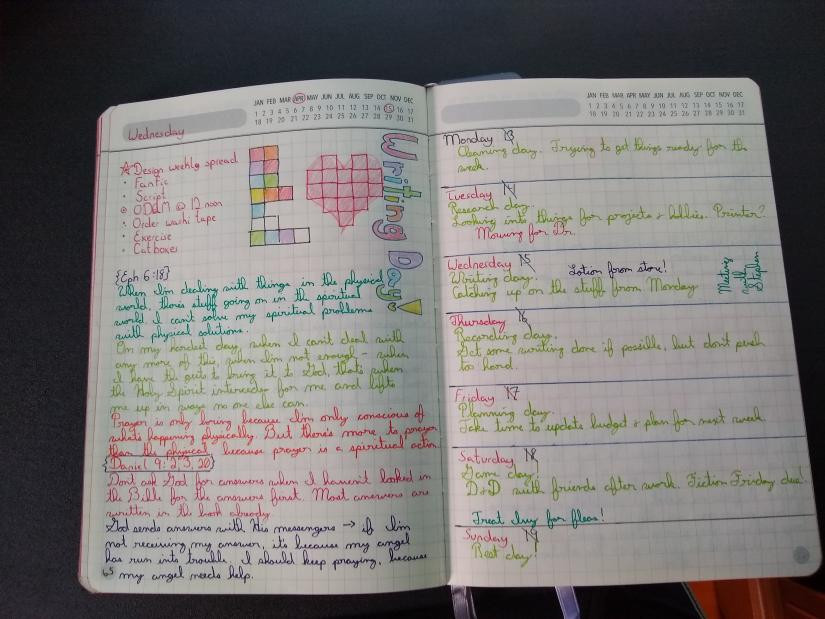 JAN FEB MAR APR MAY JUN JUL AUG SEP OCT NOV DEC
1 2 3 4 5 6 7 8 9 10 11 12 13 14 15 16 17
18 19 20 21 22 23 24 25 26 27 28 29 30 31
Wednesday
Design weekly spread
Fanfic
Script
OD&M @ 12 noon
Order washi tape
Exercise
Cat boxes
Writing Day!
{Eph 6:18}
When I'm dealing with things in the physical
world, there's stuff going on in the spiritual
world. I can't solve my spiritual problems
with physical solutions.
On my hardest day, when I can't deal with
any more of this, when I'm not enough - when
I have the guts to bring it to God, that's when
the Holy Spirit intercedes for me and lifts
me up in ways no one else can.
Prayer is only boring because I'm only conscious of
what's happening physically. But there's more to prayer
than the physical, because prayer is a spiritual action.
{Daniel 9:2, 3, 20}
Don't ask God for answers when I haven't looked in
the Bible for the answers first. Most answers are
written in the book already.
God sends answers with His messengers → if I'm
not receiving my answer, it's because my angel
has run into trouble. I should keep praying, because
my angel needs help.
65
JAN FEB MAR APR MAY JUN JUL AUG SEP OCT NOV DEC
1 2 3 4 5 6 7 8 9 10 11 12 13 14 15 16 17
18 19 20 21 22 23 24 25 26 27 28 29 30 31
Monday 13
Cleaning day. Trying to get things ready for the
week.
Tuesday 14
Research day.
Looking into things for projects & hobbies. Printer?
Mowing for Dr.
Wednesday 15
Lotion from store!
Writing day.
Catching up on the stuff from Monday
Meeting
with
Stephen
Thursday 16
Recording day.
Get some writing done if possible, but don't push
too hard.
Friday 17
Planning day.
Take time to update budget & plan for next week.
Saturday 18
Game day!
D&D with friends after work. Fiction Friday due!
Treat Ivy for fleas!
Sunday 19
Rest day!